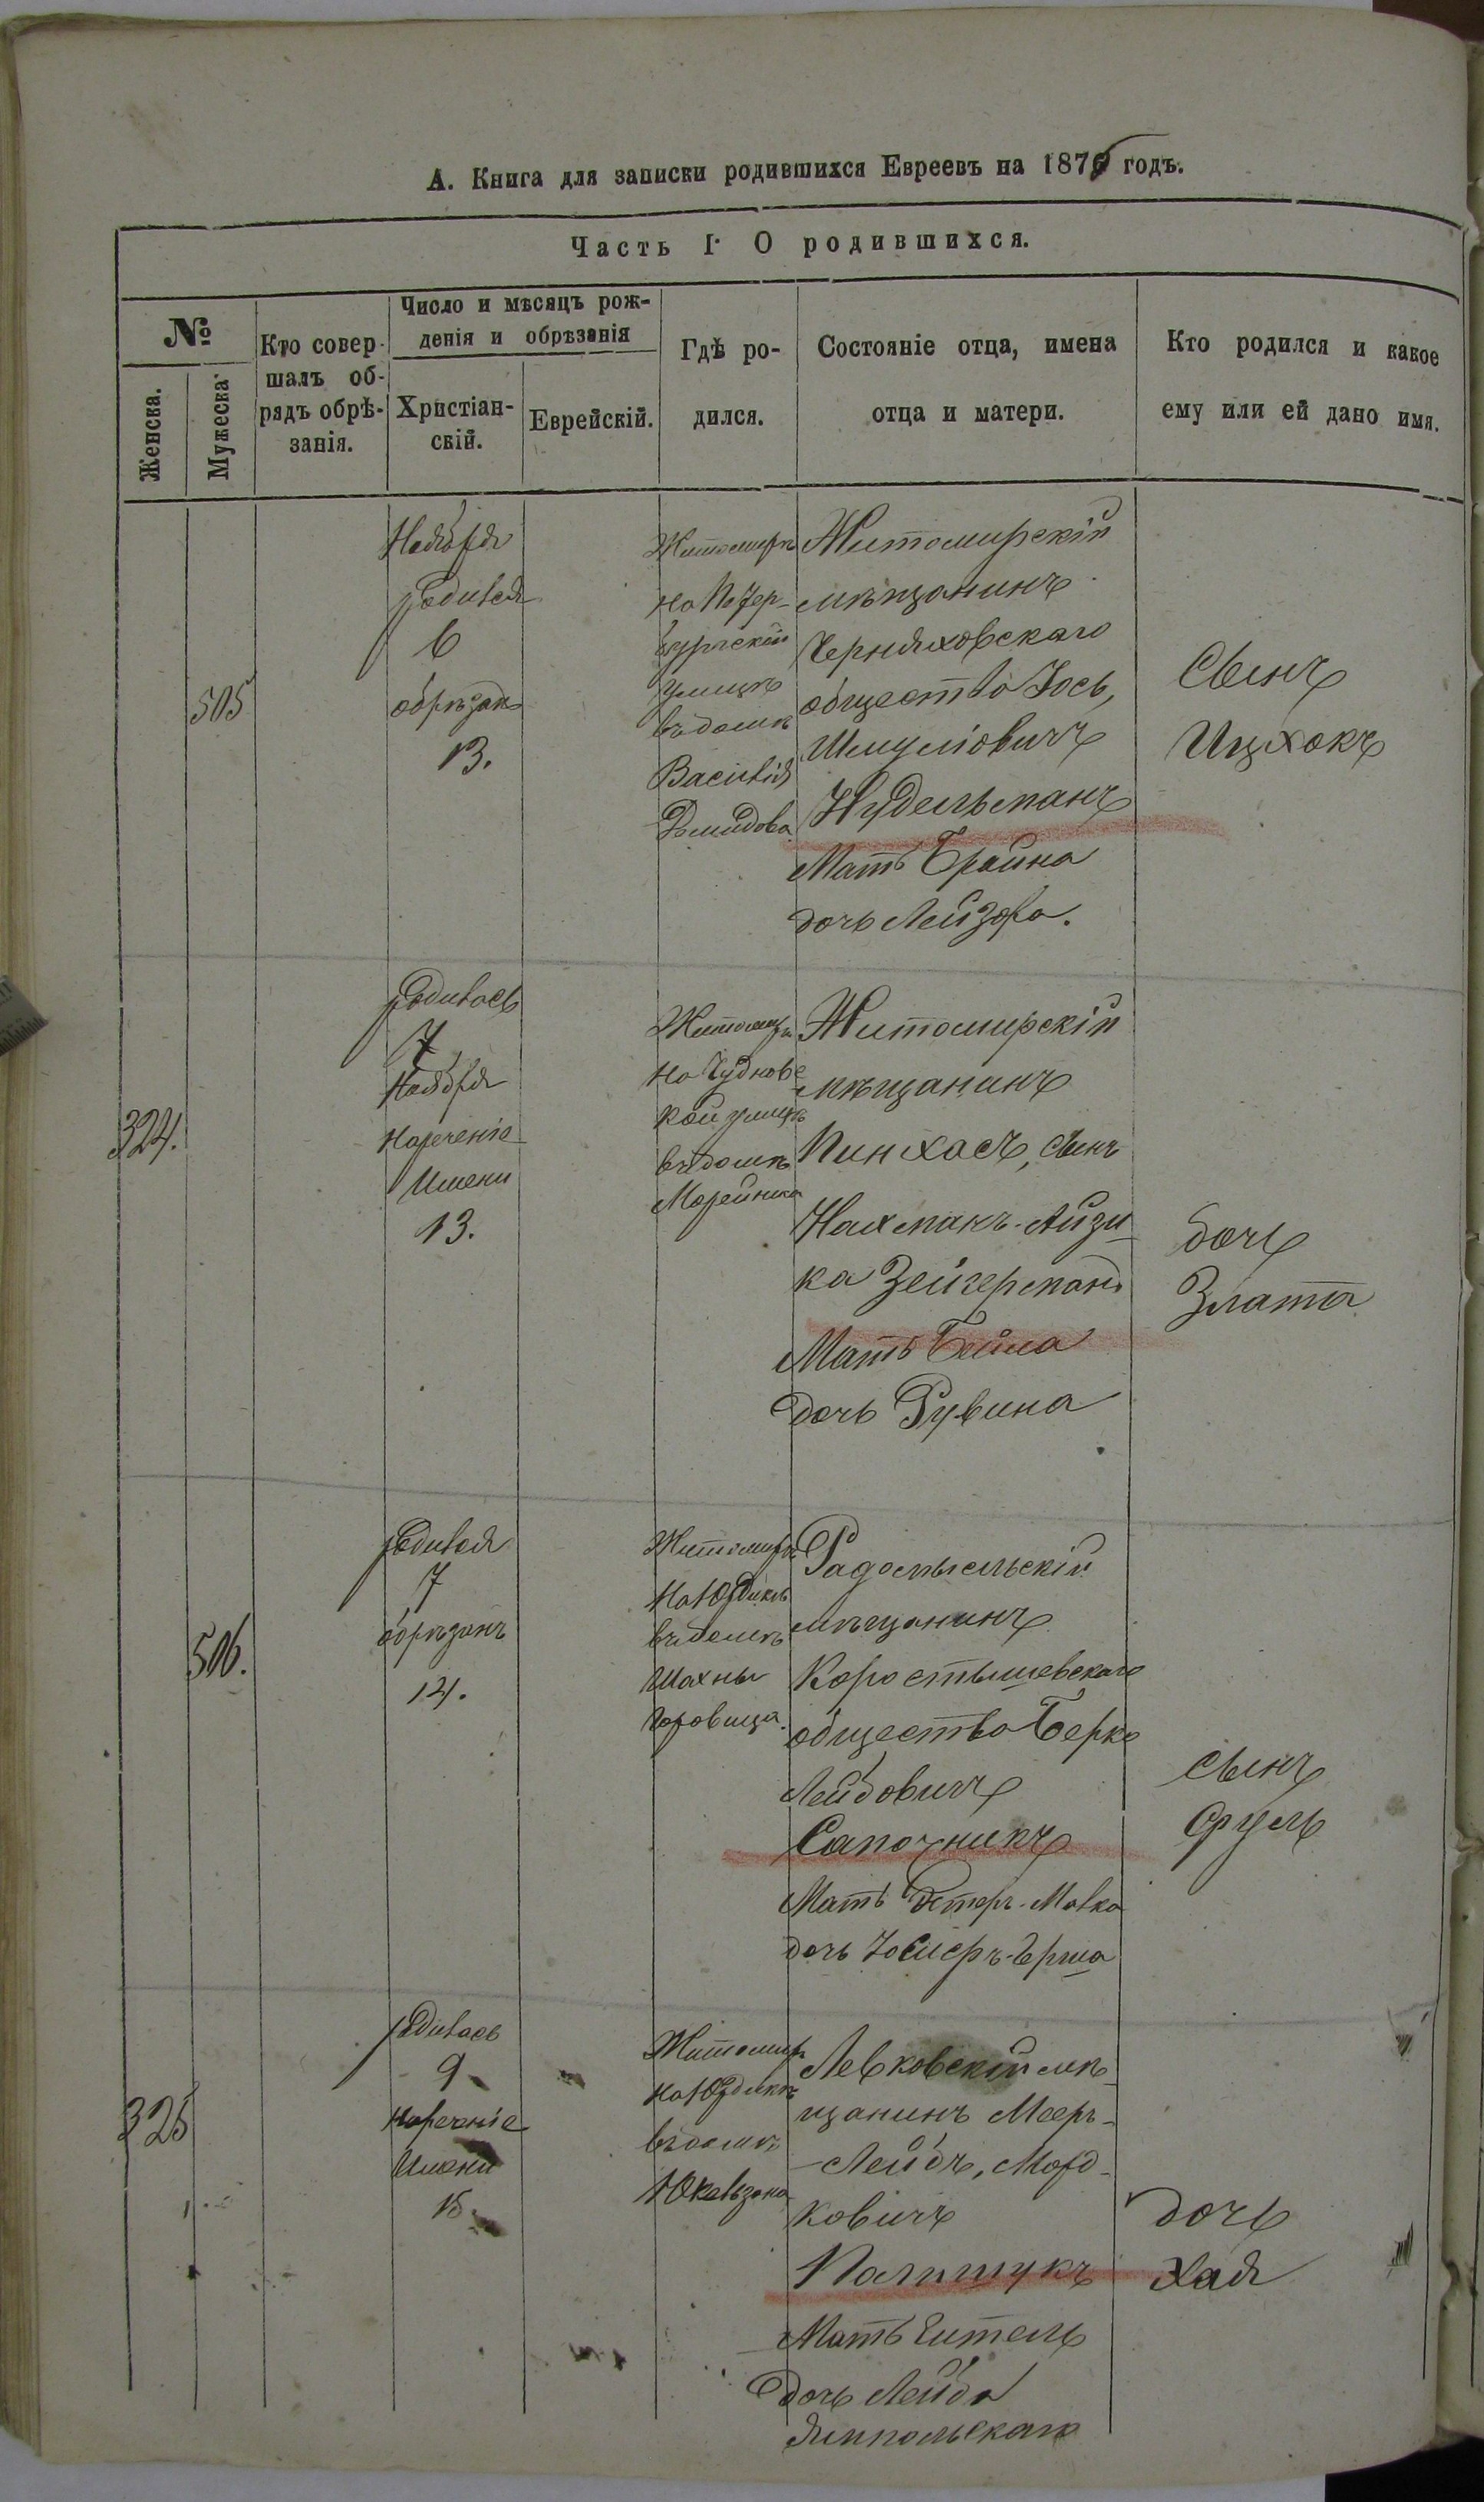 А. Книга для записки родившихся Евреевъ на 1876 годъ.
Часть I. О родившихся.
№
Женска.
Мужеска.
Кто совер-
шалъ об-
рядъ обрѣ-
занія.
Число и мѣсяцъ рож-
денія и обрѣзанія
Христіан-
скій.
Еврейскій.
Гдѣ ро-
дился.
Состояніе отца, имена
отца и матери.
Кто родился и какое
ему или ей дано имя.
505
Ноября
родился
6
обрѣзанъ
13.
Житомирѣ
на Петер-
бургской
улицѣ
въ домѣ
Василія
Демидова.
Житомирскій
мѣщанинъ
Черняховскаго
общества Іось,
Шмуліовичъ
Нудельманъ
Мать Брайна
дочь Лейзора.
Сынъ
Ицхокъ
324.
родилась
7
Ноября
нареченіе
Имени
13.
Житомирѣ
на Чудновс
кой улицѣ
въ домѣ
Мерейника
Житомирскій
мѣщанинъ
Пинхасъ, сынъ
Нахманъ-Айзи
ка Зейгерманъ
Мать Бейла
дочь Рувина
дочь
Злата
506.
родился
7
обрѣзанъ
14.
Житомирѣ
на Юрдикѣ
въ домѣ
Шахны
Горовица.
Радомысльскій
мѣщанинъ
Коростышевскаго
общества Берко
Лейбовичъ
Сапожникъ
Мать Эстеръ-Малка
дочь Іойсеръ-Герша
сынъ
Сруль
325
родилась
9
нареченіе
Имени
15.
Житомирѣ
на Юрдикѣ
въ домѣ
Юкельзона
Левковскій мѣ-
щанинъ Мееръ-
Лейбъ, Морд-
ковичъ
Палишукъ
Мать Ентель
дочь Лейба
Ямпольскаго
дочь
Хая